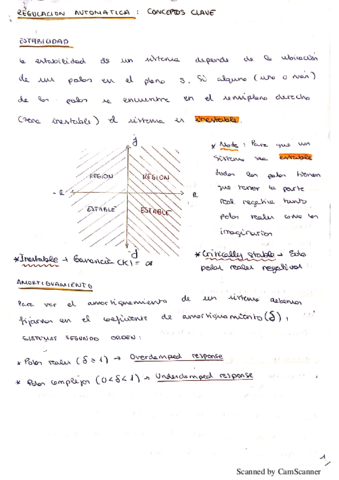 REGULACION AUTOMATICA : CONCEPTOS CLAVE
ESTABILIDAD
la estabilidad de un sistema depende de la ubicación
de sus polos en el plano s. Si alguno (uno o más)
de los polos se encuentra en el semiplano derecho
(zona inestable) el sistema es inestable.
REGION
REGION
ESTABLE
ESTABLE
* Nota: Para que un
sistema sea estable
todos los polos tienen
que tener la parte
real negativa tanto
polos reales como los
imaginarios
* Inestable → Ganancia (K) =
* Critically stable → Solo
polos reales negativos
AMORTIGUAMIENTO
Para ver el amortiguamiento de un sistema debemos
fijarnos en el coeficiente de amortiguamiento (δ).
SISTEMAS SEGUNDO ORDEN:
* Polos reales (δ ≥ 1) → Overdamped response
* Polos complejos (0<δ<1) → Underdamped response
1
Scanned by CamScanner